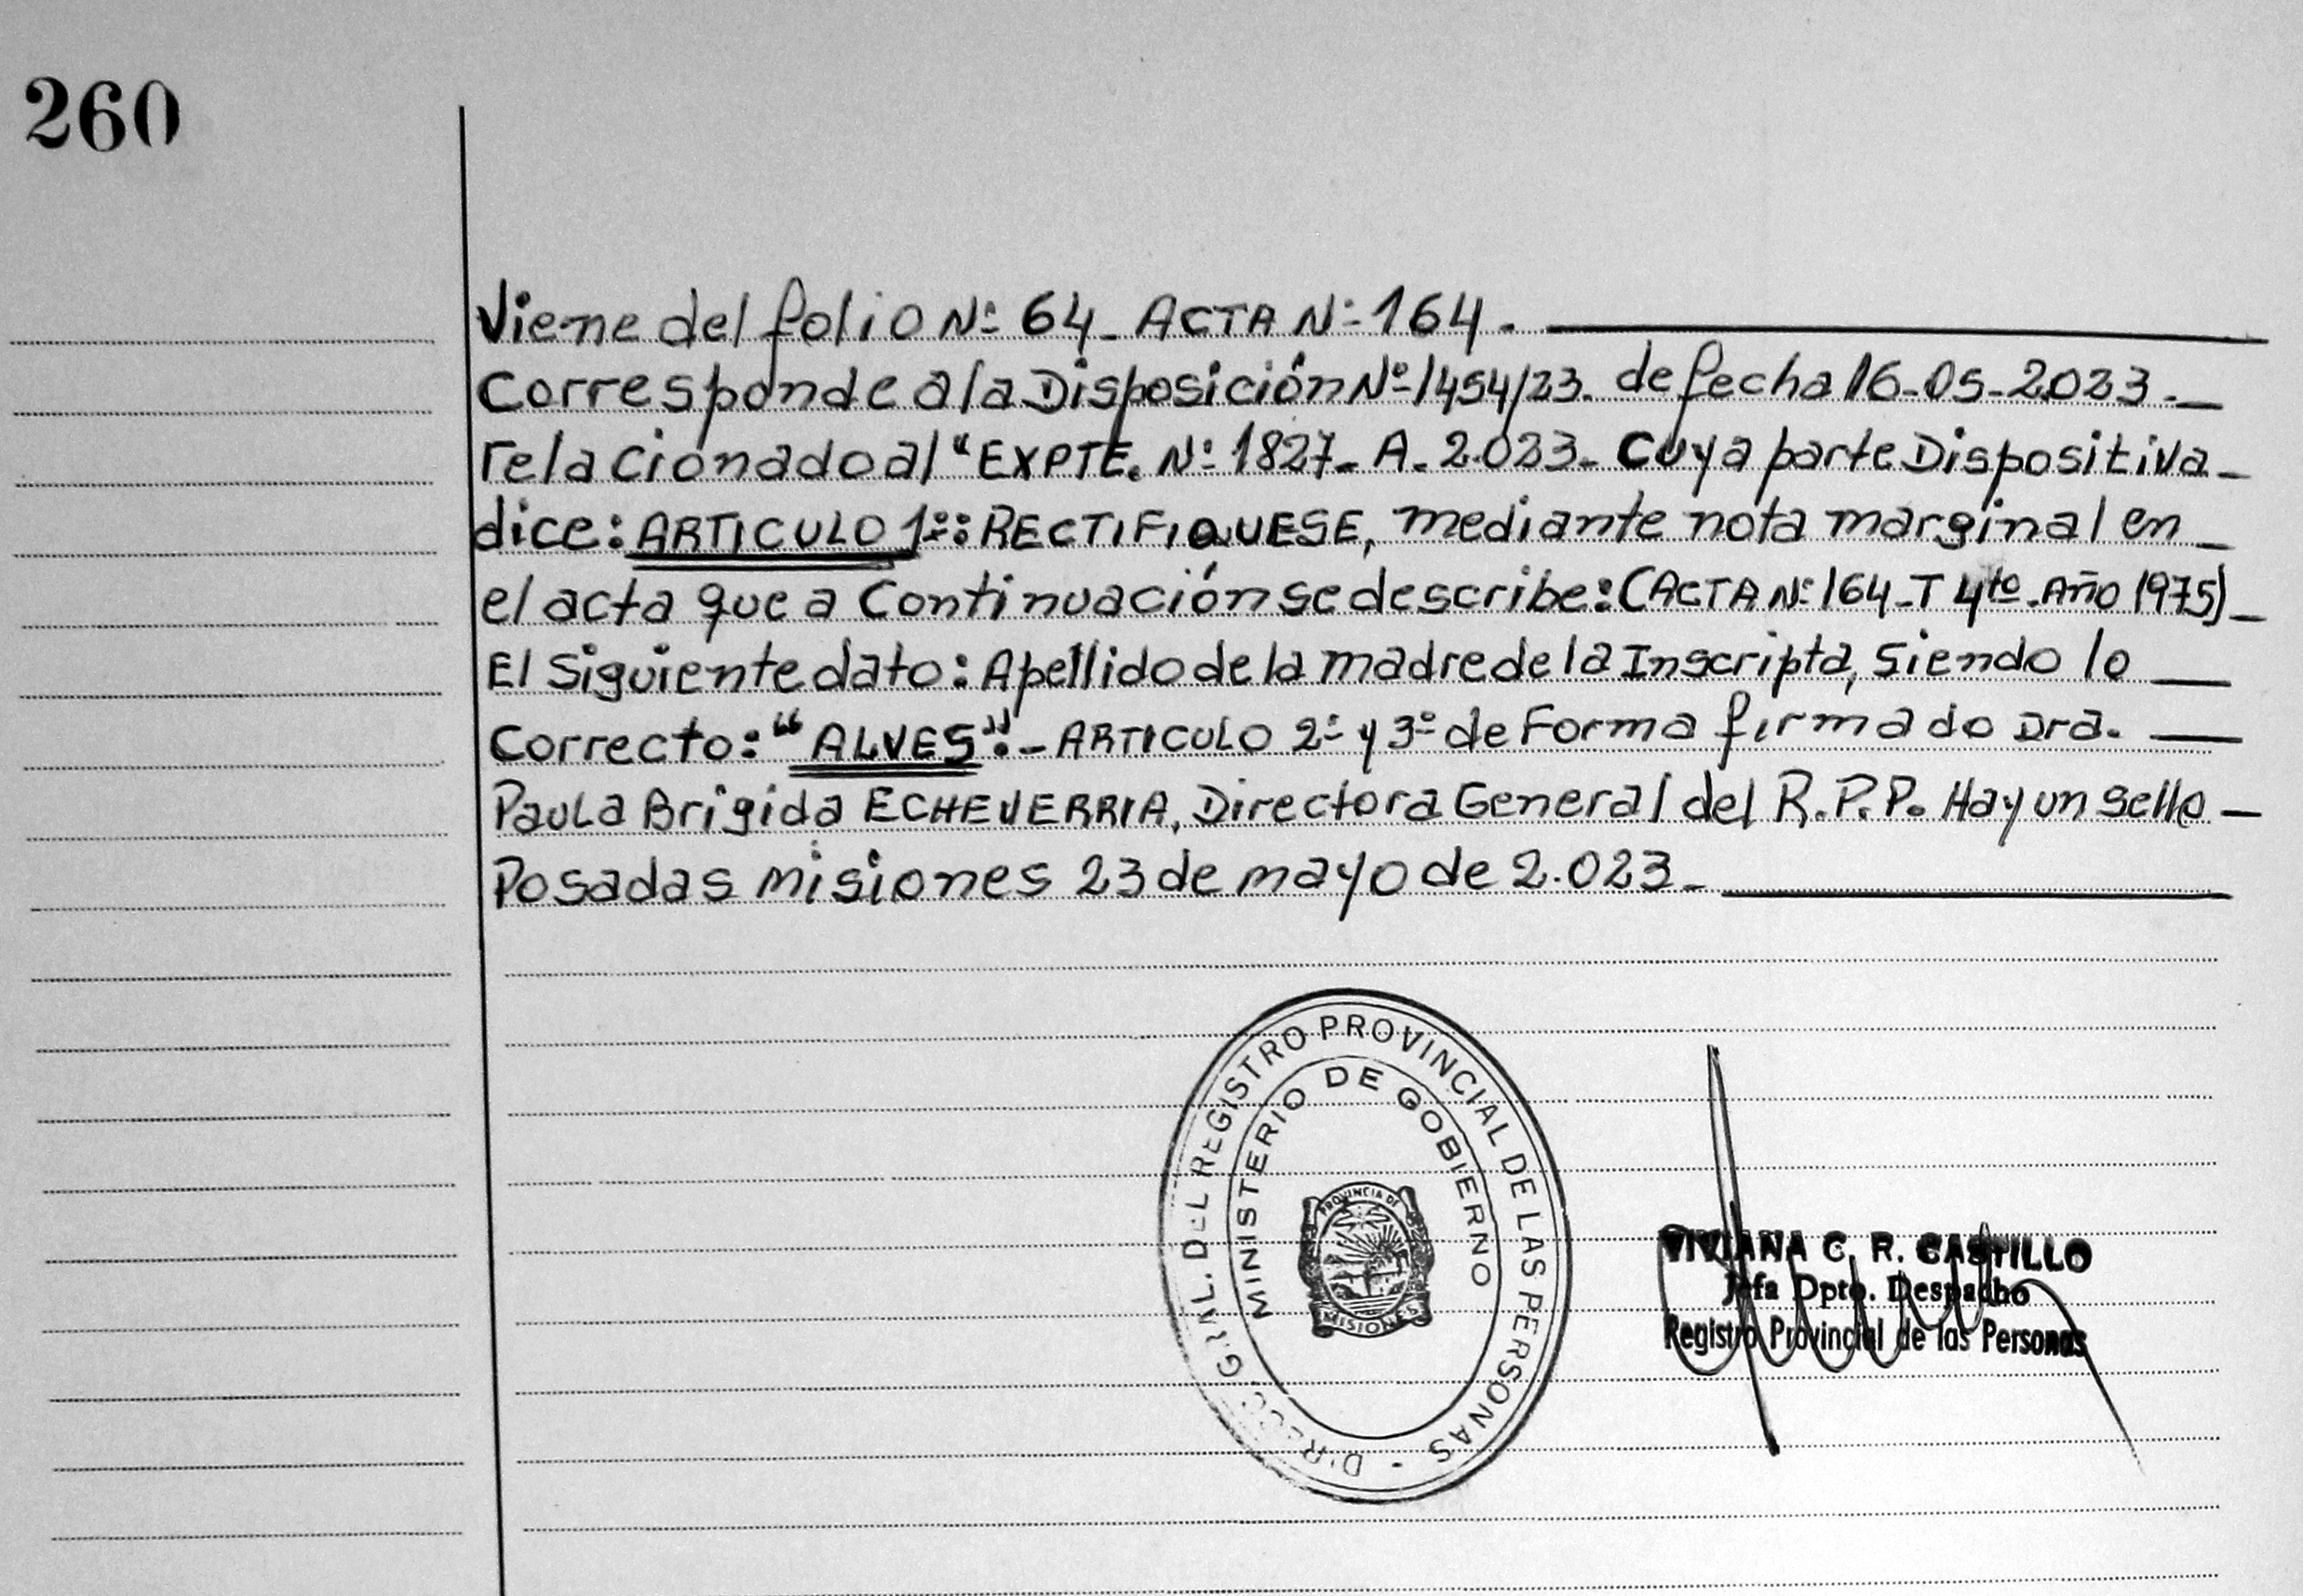 260
Viene del folio Nº 64_ ACTA Nº 164. 
Corresponde a la Disposición Nº 1454/23. de fecha 16-05-2.023._
relacionado al "EXPTE. Nº 1827_ A_ 2.023_ Cuya parte Dispositiva_
dice: ARTICULO 1º: RECTIFIQUESE, mediante nota marginal en_
el acta que a Continuación se describe: (ACTA Nº 164_T 4to_Año 1975)_
El Siguiente dato: Apellido de la madre de la Inscripta, Siendo lo_
Correcto: "ALVES"._ ARTICULO 2º y 3º de Forma firmado Dra._
Paula Brigida ECHEVERRIA, Directora General del R.P.P. Hay un sello_
Posadas Misiones 23 de mayo de 2.023_
GRAL. DEL REGISTRO PROVINCIAL DE LAS PERSONAS -
MINISTERIO DE GOBIERNO
PROVINCIA DE
MISIONES
VIVIANA C. R. CASTILLO
Jefa Dpto. Despacho
Registro Provincial de las Personas